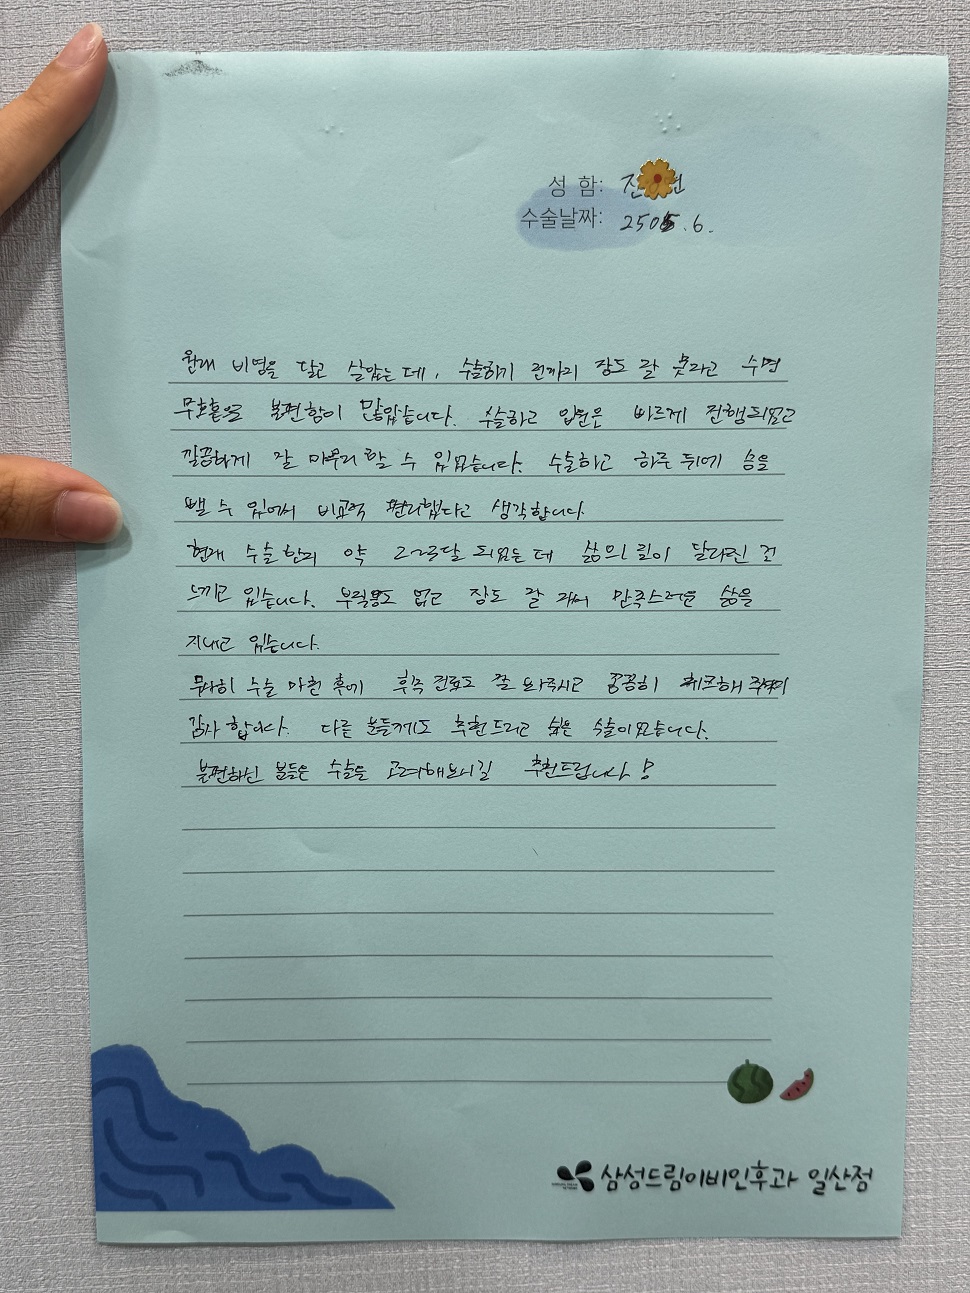 성 함: 전
수술날짜: 2505.6.
원래 비염을 달고 살았는데, 수술하기 전까지 잠도 잘 못자고 수면
무호흡으로 불편함이 많았습니다. 수술하고 입원은 빠르게 진행되었고
깔끔하게 잘 마무리 할 수 있었습니다. 수술하고 하루 뒤에 솜을
뺄 수 있어서 비교적 편리했다고 생각합니다
현재 수술한지 약 2~3달 되었는데 삶의 질이 달라진 걸
느끼고 있습니다. 부작용도 없고 잠도 잘 자서 만족스러운 삶을
지내고 있습니다.
무사히 수술 마친 후에 후속 진료도 잘 봐주시고 꼼꼼히 체크해 주셔서
감사합니다. 다른 분들께도 추천드리고 싶은 수술이었습니다.
불편하신 분들은 수술을 고려해보시길 추천드립니다!
삼성드림이비인후과 일산점